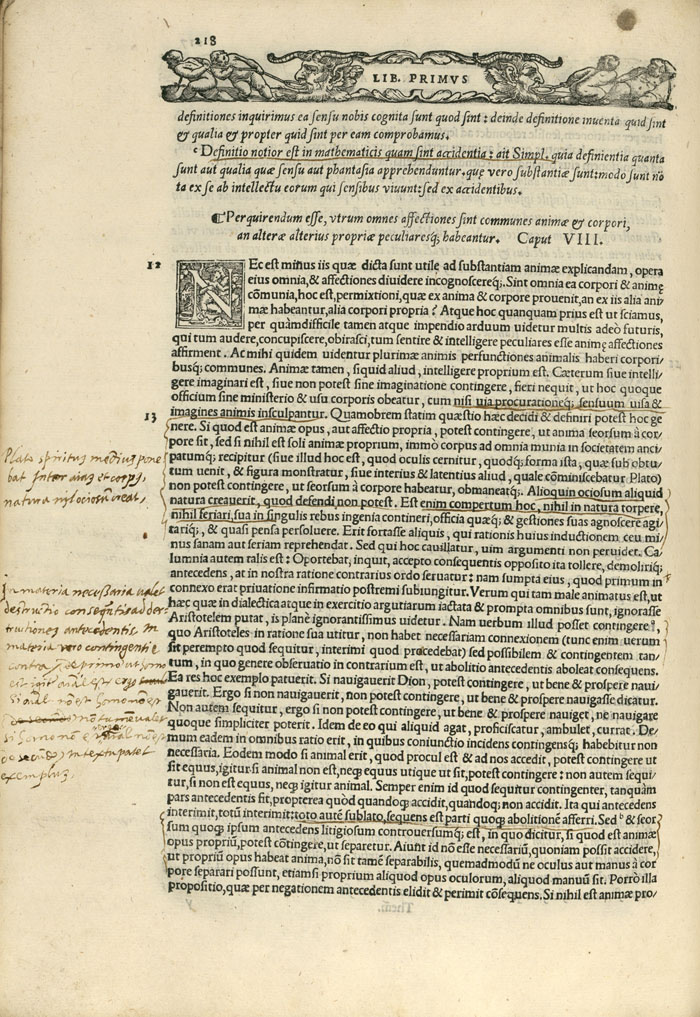 218
LIB. PRIMVS
definitiones inquirimus ea sensu nobis cognita sunt quod sint : deinde definitione inuenta quid sint
& qualia & propter quid sint per eam comprobamus.
c Definitio notior est in mathematicis quam sint accidentia : ait Simpl. quia definientia quanta
sunt aut qualia quæ sensu aut phantasia apprehenduntur. quę vero substantiæ sunt: modo sunt nō
ta ex se ab intellectu eorum qui sensibus viuunt: sed ex accidentibus.
¶ Perquirendum esse, vtrum omnes affectiones sint communes animæ & corpori,
an alteræ alterius propriæ peculiaresq; habeantur. Caput VIII.
12 NEc est minus iis quæ dicta sunt utile ad substantiam animæ explicandam, opera
eius omnia, & affectiones diuidere incognoscereq;. Sint omnia ea corpori & animę
cōmunia, hoc est, permixtioni, quæ ex anima & corpore prouenit, an ex iis alia ani/
mæ habeantur, alia corpori propria ? Atque hoc quanquam prius est ut sciamus,
per quàm difficile tamen atque impendio arduum uidetur multis adeò futuris,
qui tum audere, concupiscere, obirasci, tum sentire & intelligere peculiares esse animę affectiones
affirment. At mihi quidem uidentur plurimæ animis perfunctiones animalis haberi corpori/
busq; communes. Animæ tamen, siquid aliud, intelligere proprium est. Cæterum siue intelli/
gere imaginari est, siue non potest sine imaginatione contingere, fieri nequit, ut hoc quoque
officium sine ministerio & usu corporis obeatur, cum nisi uia procurationeq; sensuum uisa &
imagines animis insculpantur. Quamobrem statim quæstio hæc decidi & definiri potest hoc ge
13 nere. Si quod est animæ opus, aut affectio propria, potest contingere, ut anima seorsum à cor/
pore sit, sed si nihil est soli animæ proprium, immò corpus ad omnia munia in societatem anci
patumq; recipitur (siue illud hoc est, quod oculis cernitur, quodq; forma ista, quæ sub obtu/
tum uenit, & figura monstratur, siue interius & latentius aliud, quale cōminiscebatur Plato)
non potest contingere, ut seorsum à corpore habeatur, obmaneatq;. Alioquin ociosum aliquid
natura creauerit, quod defendi non potest. Est enim compertum hoc, nihil in natura torpere,
nihil feriari, sua in singulis rebus ingenia contineri, officia quæq; & gestiones suas agnoscere agi/
tariq;, & quasi pensa persoluere. Erit fortasse aliquis, qui rationis huius inductionem ceu mi/
nus sanam aut seriam reprehendat. Sed qui hoc cauillatur, uim argumenti non peruidet. Ca/
lumnia autem talis est : Oportebat, inquit, accepto consequentis opposito ita tollere, demoliriq;
antecedens, at in nostra ratione contrarius ordo seruatur : nam sumpta eius, quod primum in
connexo erat priuatione infirmatio postremi subiungitur. Verum qui tam male animatus est, ut
hæc quæ in dialectica atque in exercitio argutiarum iactata & prompta omnibus sunt, ignorasse
Aristotelem putat, is planè ignorantissimus uidetur. Nam uerbum illud posset contingere,
quo Aristoteles in ratione sua utitur, non habet necessariam connexionem (tunc enim uerum
sit perempto quod sequitur, interimi quod procedebat) sed possibilem & contingentem tan/
tum, in quo genere obseruatio in contrarium est, ut abolitio antecedentis aboleat consequens.
Ea res hoc exemplo patuerit. Si nauigauerit Dion, potest contingere, ut bene & prospere naui/
gauerit. Ergo si non nauigauerit, non potest contingere, ut bene & prospere nauigasse dicatur.
Non autem sequitur, ergo si non potest contingere, ut bene & prospere nauiget, ne nauigare
quoque simpliciter poterit. Idem de eo qui aliquid agat, proficiscatur, ambulet, currat. De/
mum eadem in omnibus ratio erit, in quibus coniunctio incidens contingensq; habebitur non
necessaria. Eodem modo si animal erit, quod procul est & ad nos accedit, potest contingere ut
sit equus, igitur si animal non est, neq; equus utique ut sit, potest contingere : non autem sequi/
tur, si non est equus, neq; igitur animal. Semper enim id quod sequitur contingenter, tanquam
pars antecedentis sit, propterea quòd quandoq; accidit, quandoq; non accidit. Ita qui antecedens
interimit, totū interimit: toto autē sublato, sequens est parti quoq; abolitionē afferri. Sed b & seor
sum quoq; ipsum antecedens litigiosum controuersumq; est, in quo dicitur, si quod est animæ
opus propriū, potest cōtingere, ut separetur. Aiunt id nō esse necessariū, quoniam possit accidere,
ut propriū opus habeat anima, nō sit tamē separabilis, quemadmodū ne oculus aut manus à cor
pore separari possunt, etiamsi proprium aliquod opus oculorum, aliquod manuū sit. Porrò illa
propositio, quæ per negationem antecedentis elidit & perimit cōsequens, Si nihil est animæ pro/
Plato spiritus medius pone
bat inter aiam et corpus,
natura nil ociosum creat,
In materia necessaria valet
destructio consequentis ad des
tructionem antecedentis In
materia vero contingenti e
contra
exemplum,